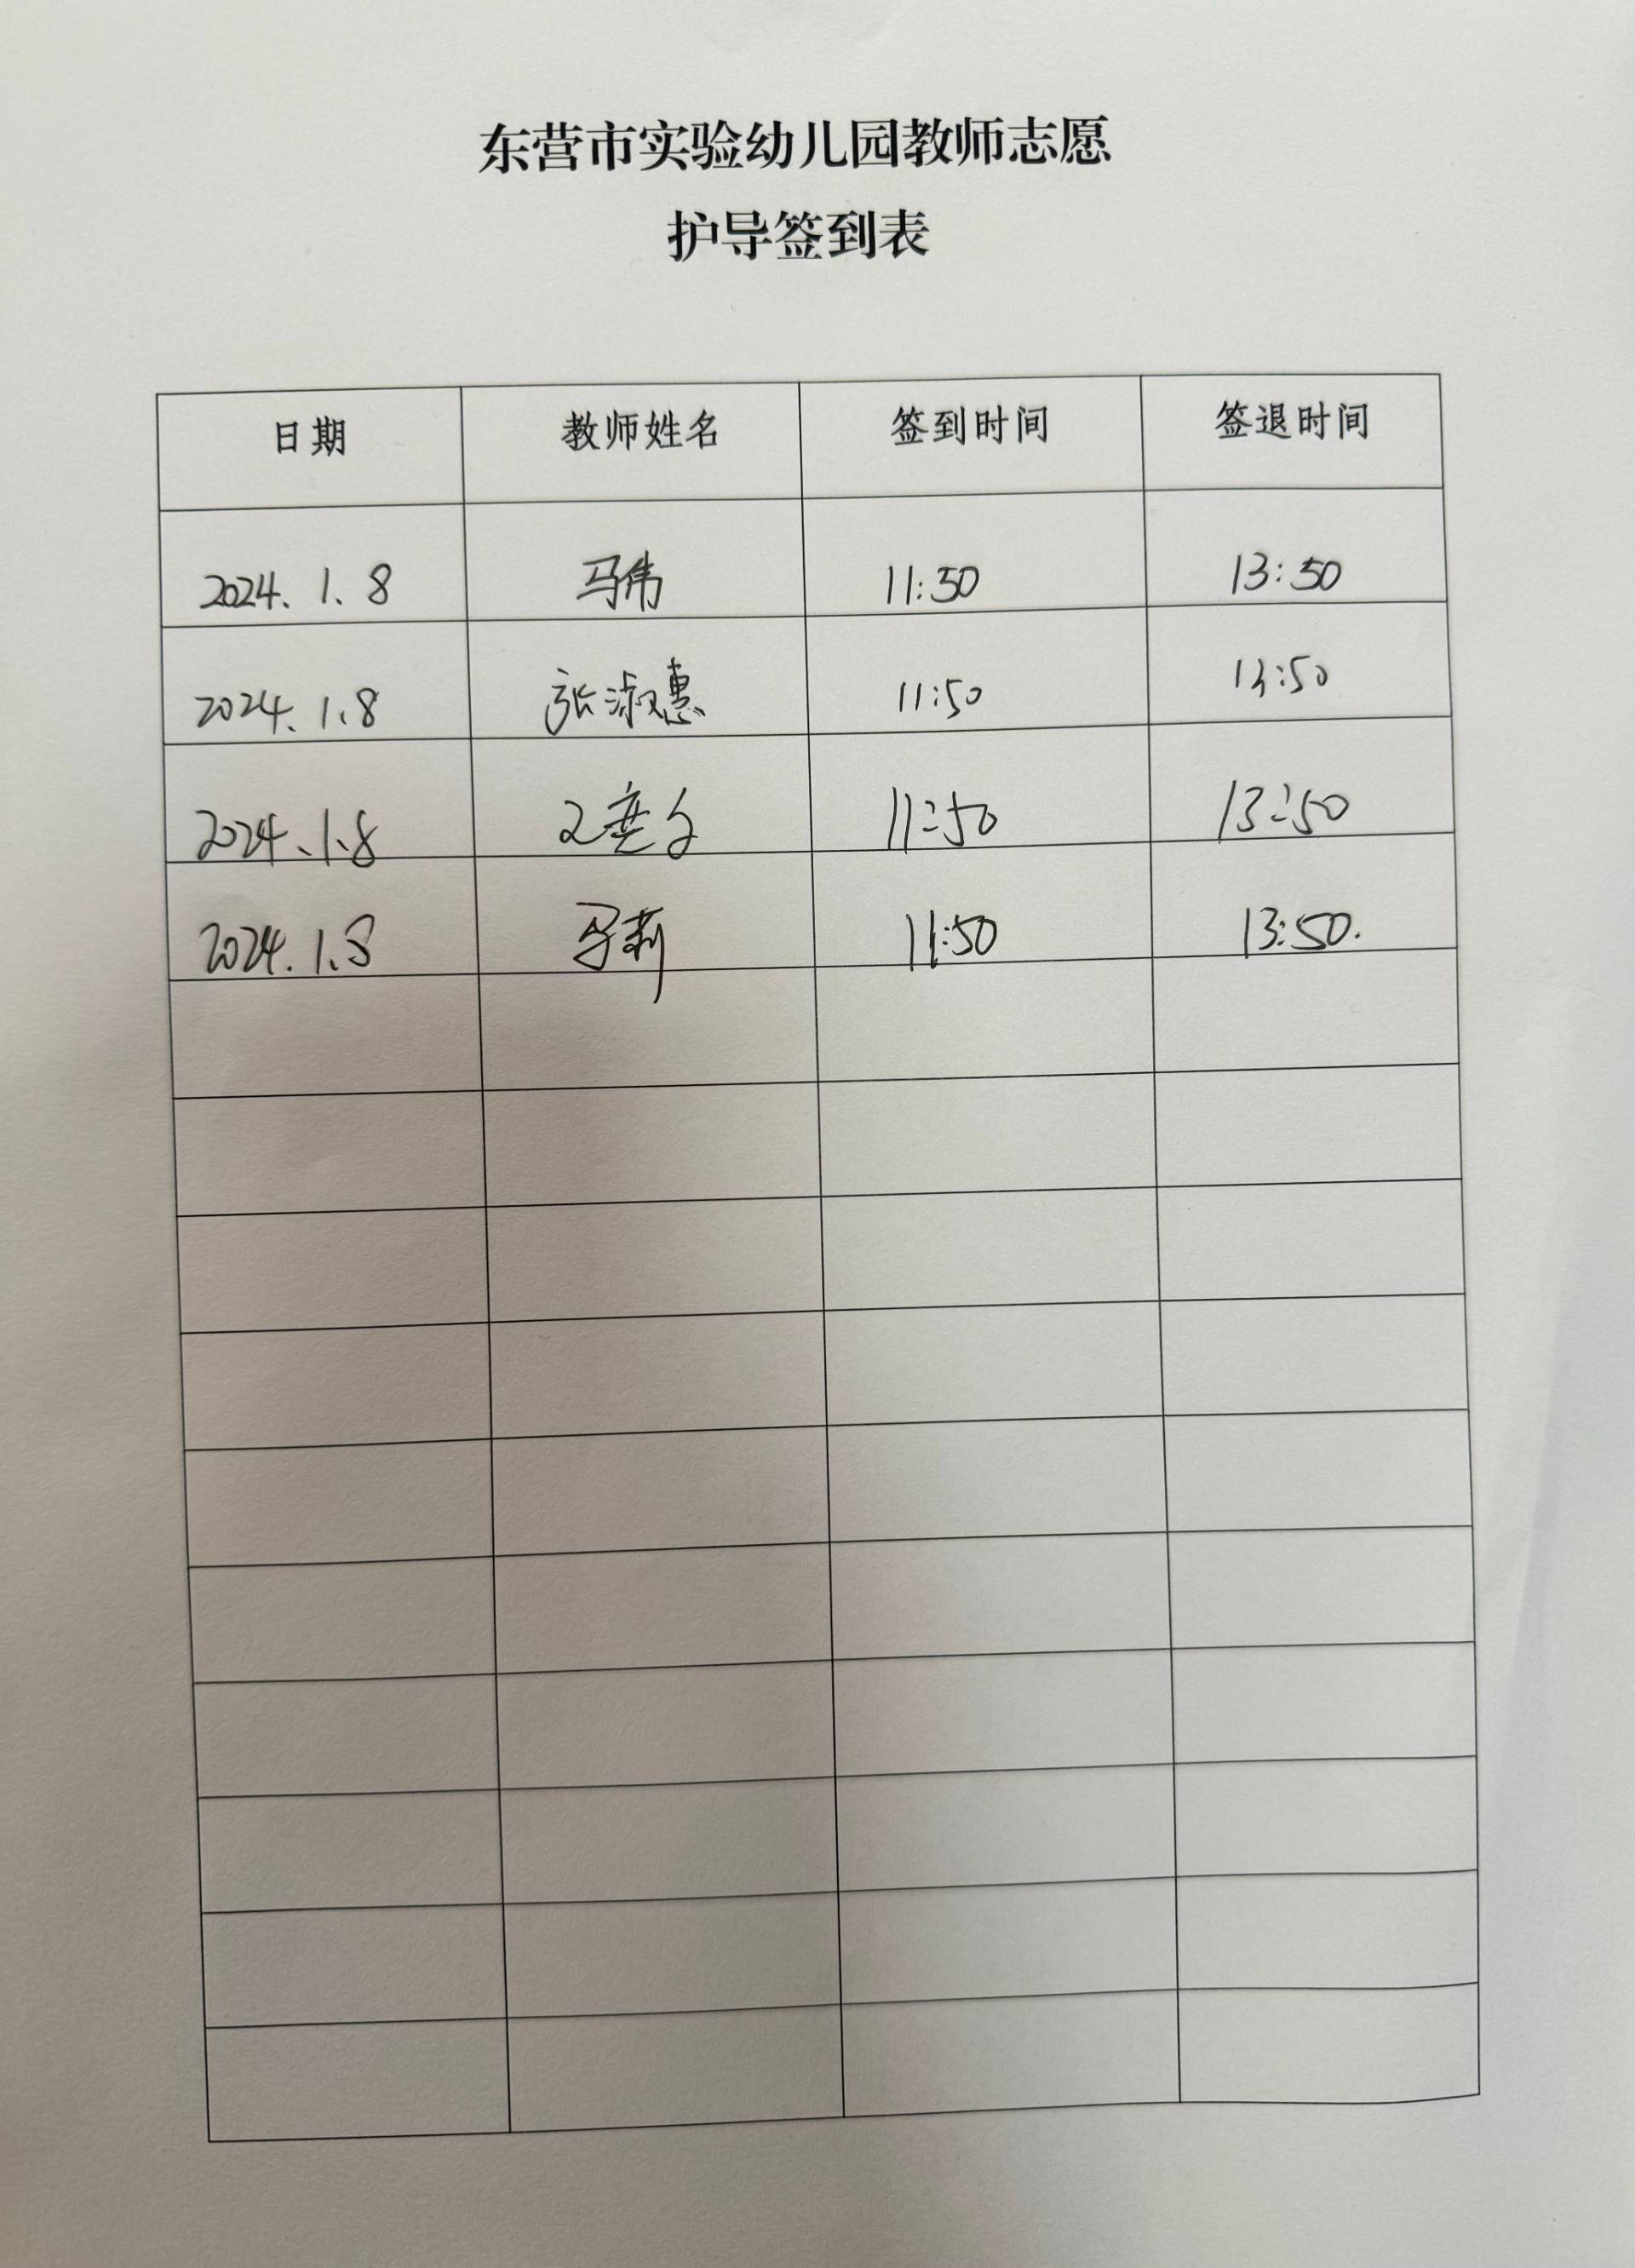 东营市实验幼儿园教师志愿
护导签到表
日期 教师姓名 签到时间 签退时间
2024.1.8 马伟 11:50 13:50
2024.1.8 张淑惠 11:50 13:50
2024.1.8 11:50 13:50
2024.1.8 马莉 11:50 13:50.